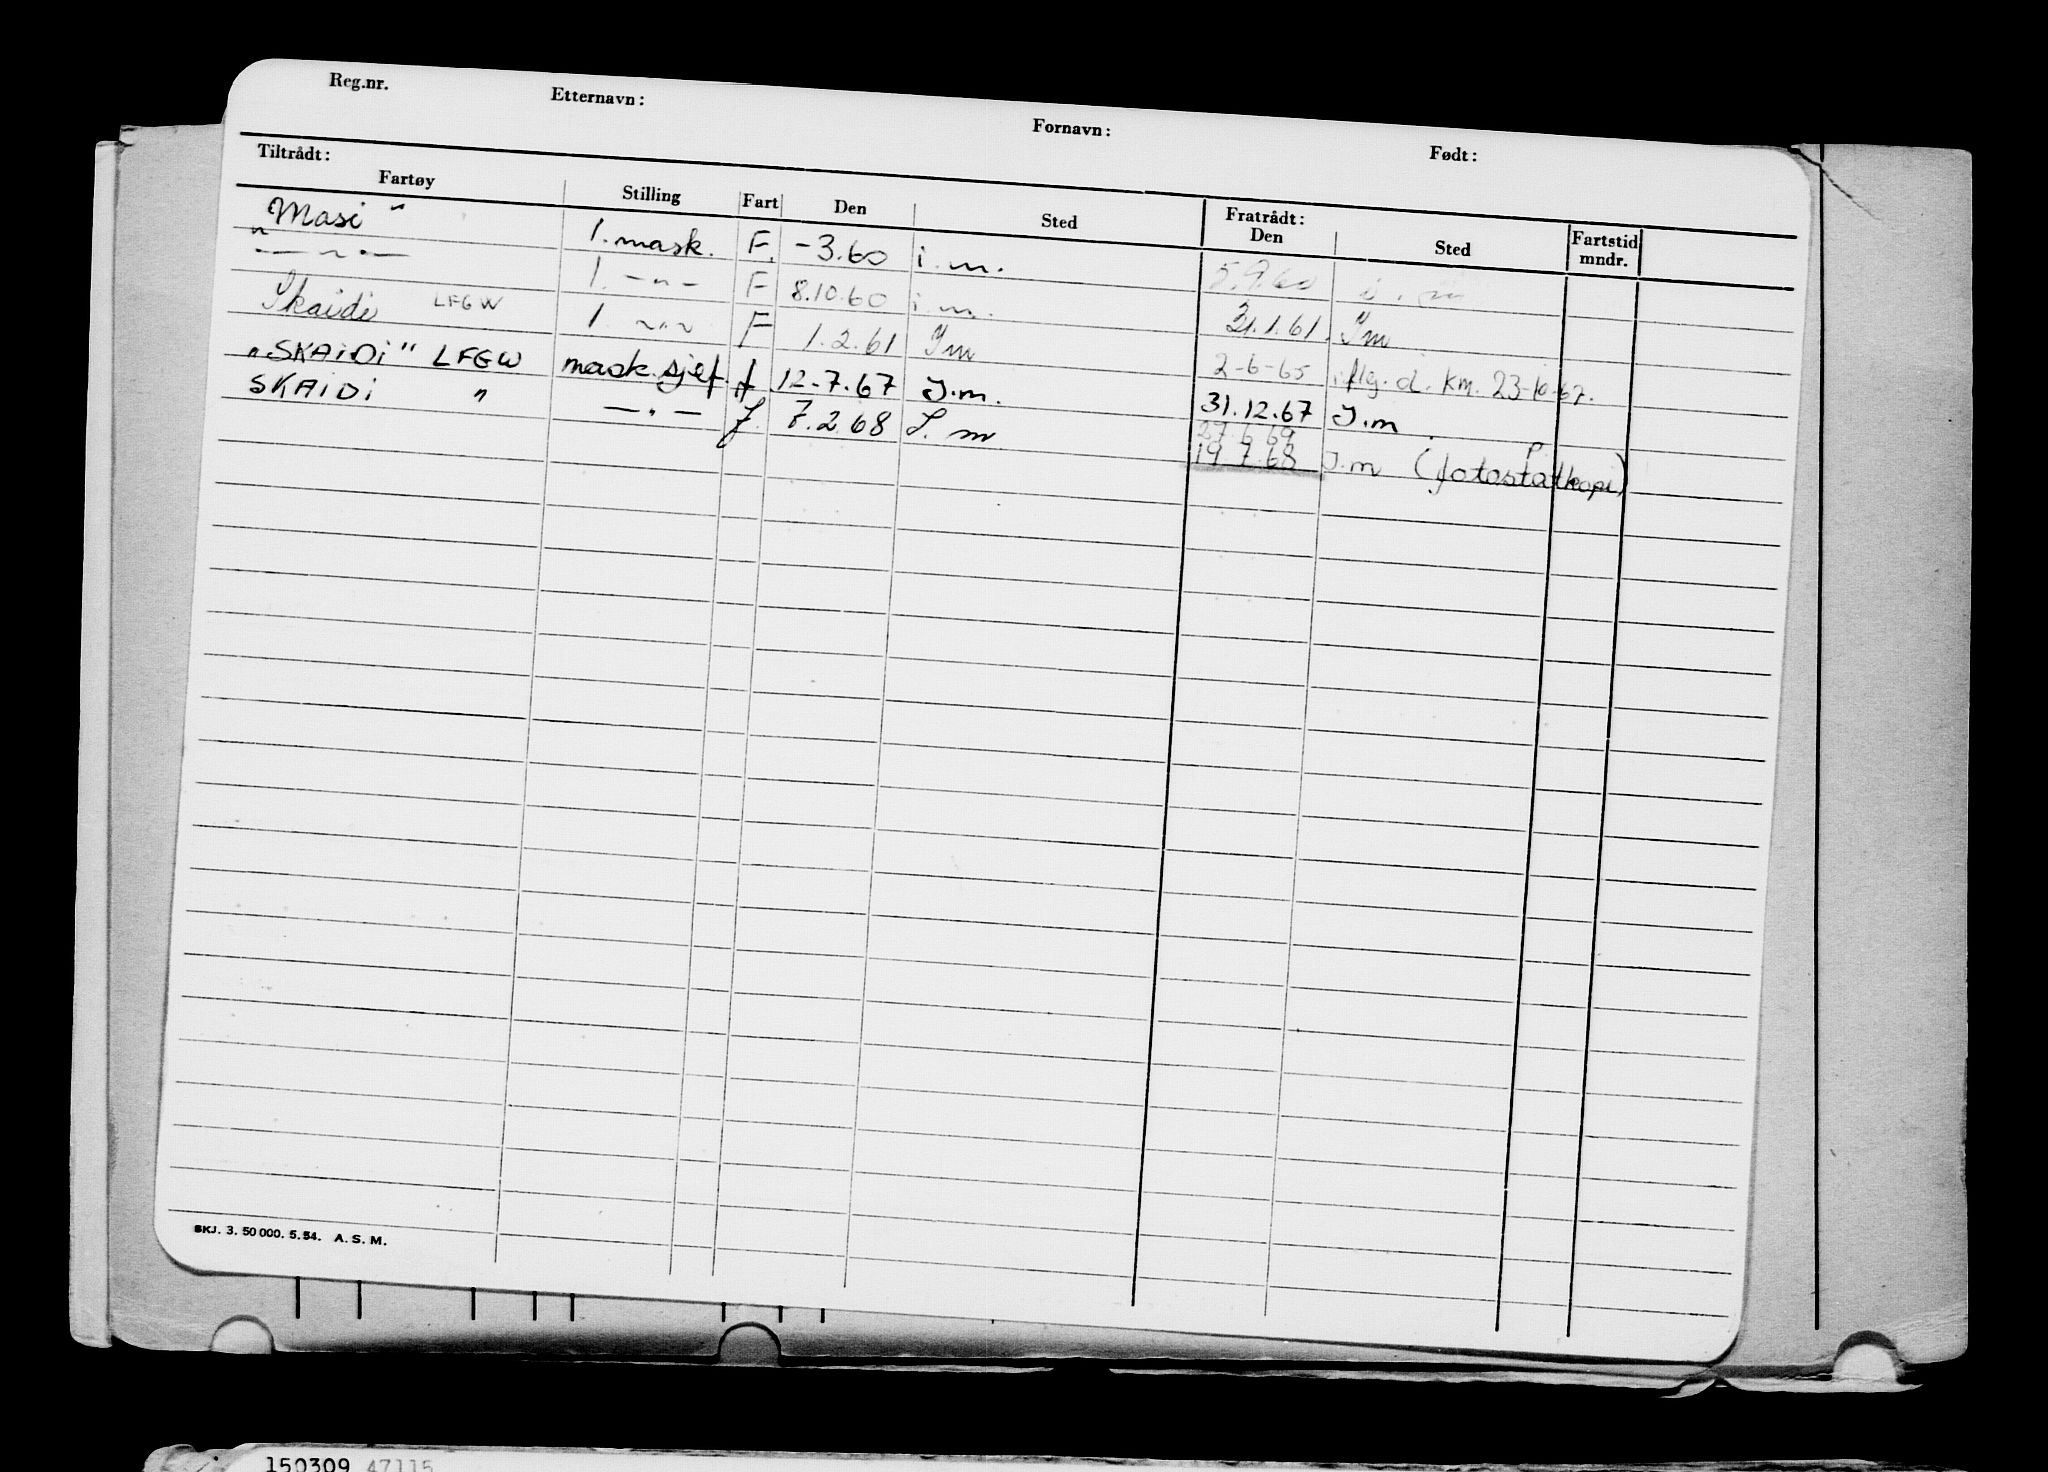 Reg.nr. Etternavn: Fornavn: Født:
Tiltrådt: Fratrådt:
Fartøy Stilling Fart Den Sted Den Sted Fartstid mndr.
"Masi" 1. mask. F. -3.60 i.m. 5.9.60 i.m
—"— 1. -"- F 8.10.60 i.m. 31.1.61. Im
Skaidi LFGW 1. -"- F 1.2.61 Im 2-6-65 iflg. d. Km. 23-10-67.
"SKAIDI" LFGW mask.sjef. f 12.7.67 I.m. 31.12.67 I.m
SKAIDI " —"— f. 7.2.68 I.m 27.6.69
19.7.68 I.m (fotostatkopi)
SKJ. 3. 50 000. 5. 54. A. S. M.
150309 47115